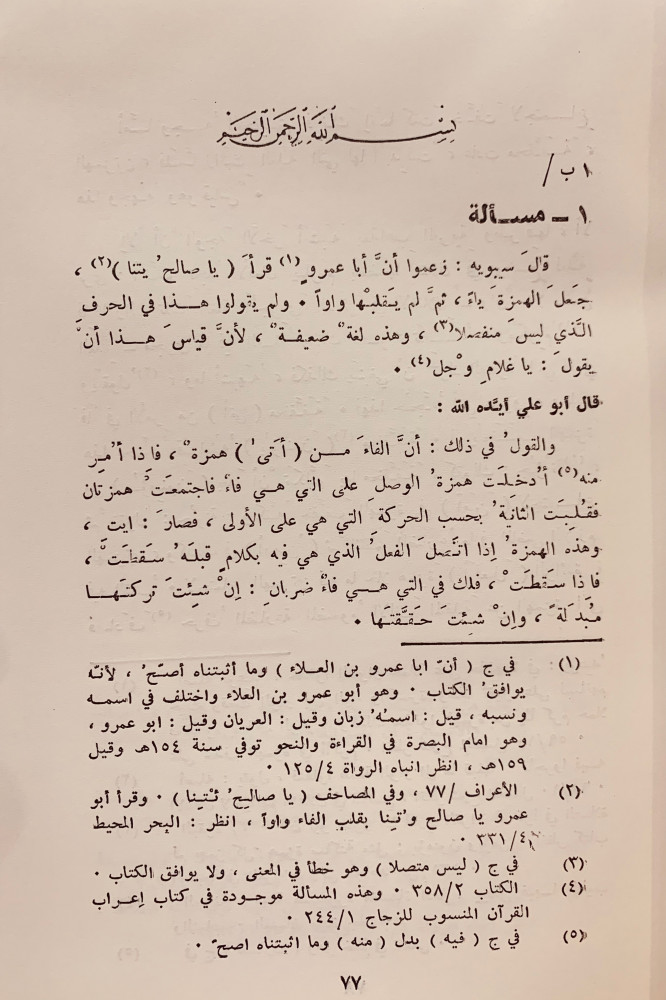 بسم الله الرحمن الرحيم
١ ب /
١ ــ مســألة
قالَ سيبويه : زعموا أنَّ أبا عمروٍ(١) قرأَ ( يا صالحُ يتنا )(٢) ،
جَعلَ الهمزةَ ياءً ، ثمَّ لم يَقلبْها واواً ٠ ولم يقولوا هــذا في الحرف
الَّذي ليسَ منفصلا(٣) ، وهذه لغةٌ ضعيفـةٌ ، لأنَّ قياسَ هــذا أنْ
يقولَ : يا غلامِ وْجل(٤) ٠
قال أبو علي أيَّده الله :
والقولُ في ذلك : أنَّ الفاءَ مــن ( أتى ) همزةٌ ، فإذا أُمِر
منه(٥) أُدخِلَت همزةُ الوصلِ على التي هــي فاءٌ فاجتمعَتْ همزتان
فقُلِبَت الثانيةُ بحسب الحركةِ التي هي على الأولى ، فصارَ : ايتِ ،
وهذه الهمزةُ إذا اتَّصلَ الفعلُ الذي هي فيه بكلامٍ قبلَهُ سَقطَتْ ،
فاذا سَقطَتْ ، فلك في التي هــي فاءٌ ضربانِ : إنْ شئتَ تركتَهــا
مُبدَلةً ، وإنْ شئتَ حَقَّقتَها ٠
(١) في ج ( أنّ ابا عمرو بن العــلاء ) وما أثبتناه أصــحُ ، لأنــه
يوافقُ الكتاب ٠ وهو أبو عمرو بن العلاء واختلف في اسمــه
ونسبه ، قيل : اسمُهُ زبان وقيل : العريان وقيل : ابو عمرو ،
وهو امام البصرة في القراءة والنحو توفي سنة ١٥٤هـ وقيل
١٥٩هـ ، انظر انباه الرواة ١٢٥/٤ ٠
(٢) الأعراف /٧٧ ، وفي المصاحف ( يا صاليحُ ئْتِينا ) ٠ وقرأ أبو
عمرو يا صالح وُتِينا بقلب الفاء واواً ، انظر : البحر المحيط
٣٣١/٤ ٠
(٣) في ج ( ليس متصلا ) وهو خطأ في المعنى ، ولا يوافق الكتاب ٠
(٤) الكتاب ٣٥٨/٢ ٠ وهذه المسألة موجودة في كتاب إعــراب
القرآن المنسوب للزجاج ٢٤٤/١ ٠
(٥) في ج ( فيه ) بدل ( منه ) وما اثبتناه اصحّ ٠
٧٧